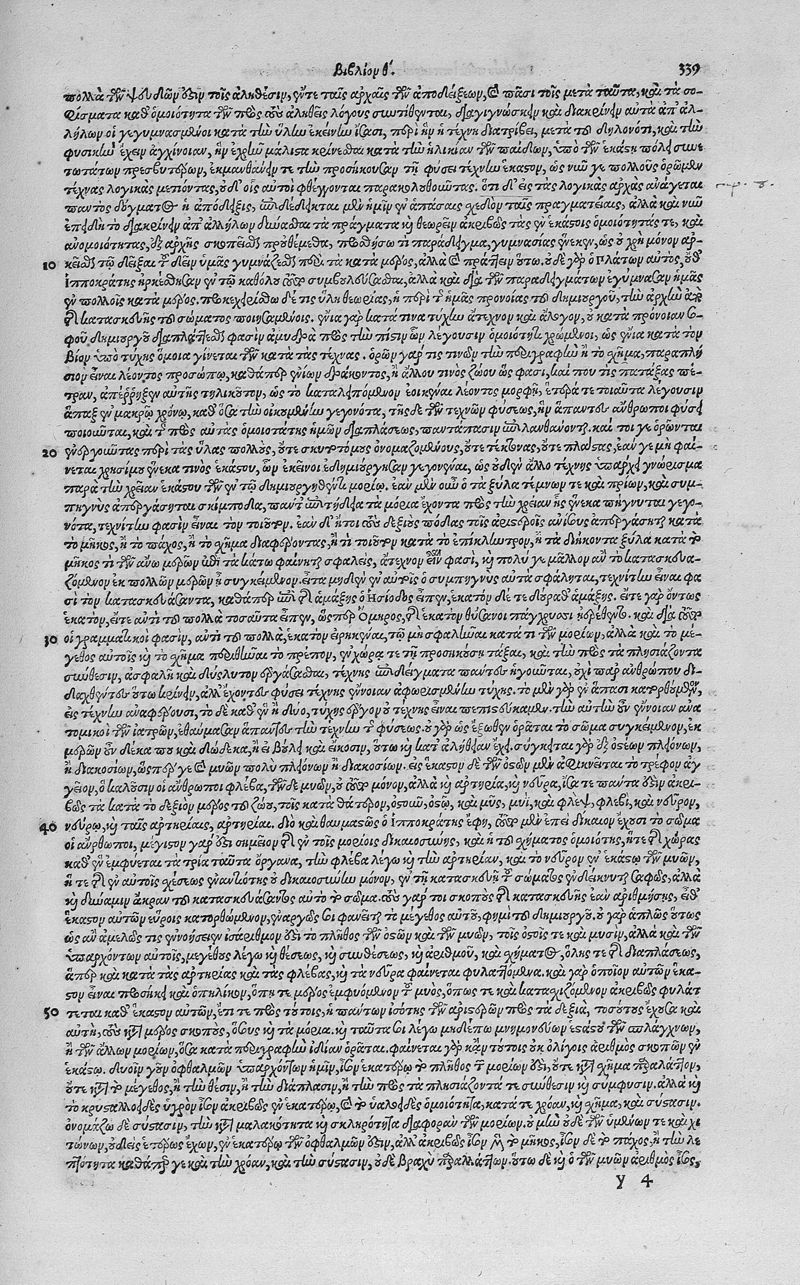 Βιβλίον θ΄. 339
πολλὰ τῶν ψευδῶν ἐστιν τοῖς ἀληθέσιν, οὔτε ταῖς ἀρχαῖς τῶν ἀποδείξεων, πᾶσι τοῖς μετὰ ταῦτα, καὶ τὰ σο-
φίσματα καθ' ὁμοιότητα τῶν πρὸς τοὺς ἀληθεῖς λόγους συντίθενται, διαγιγνώσκειν καὶ διακρίνειν αὐτὰ ἀπ' ἀλ-
λήλων οἱ γεγυμνασμένοι κατὰ τὴν ὕλην ἐκείνην ἴσασι, περὶ ἣν ἡ τέχνη διατρίβει, μετὰ τοῦ δηλονότι, καὶ τὴν
φυσικὴν ἔχειν ἀγχίνοιαν, ἣν ἐχρῆν μάλιστα κρίνεσθαι κατὰ τὴν ἡλικίαν τῶν παίδων, ὑπὸ τῶν ἑκάστῃ πόλει συνε
τωτάτων πρεσβυτέρων, ἐκμανθάνειν τε τὴν προσήκουσαν τῇ φύσει τέχνην ἕκαστον, ὡς νῦν γε πολλοὺς ὁρῶμεν
τέχνας λογικὰς μετιόντας, οὐδ' οἷς αὐτοὶ φθέγγονται παρακολουθοῦντας. ὅτι δ' εἰς τὰς λογικὰς ἀρχὰς ἀνάγεται
παντὸς δόγματος ἡ ἀπόδειξις, ἐπιδέδεικται μὲν ἡμῖν ἐν ἁπάσαις σχεδὸν ταῖς πραγματείαις, ἀλλὰ καὶ νῦν
ἐπειδὴ τὸ διακρίνειν ἀπ' ἀλλήλων δύνασθαι τὰ πράγματα καὶ θεωρεῖν ἀκριβῶς τὰς ἐν ἑκάστοις ὁμοιότητάς τε, καὶ
ἀνομοιότητας, ἐξ ἀρχῆς σκοπεῖσθαι προὐθέμεθα, προσθήσω τι παράδειγμα, γυμνασίας ἕνεκεν, ὡς οὐ χρὴ μόνον ἀρ-
10 κεῖσθαι τῷ δεῖξαι τὸ δεῖν ὑμᾶς γυμνάζεσθαι περὶ τὰ κατὰ μέρος, ἀλλὰ καὶ πράττειν οὕτω. οὐδὲ γὰρ ὁ Πλάτων αὐτὸς, οὐδ'
Ἱπποκράτης ἠρκέσθησαν ἐν τῷ καθόλου τοῦτο συμβουλεύσασθαι, ἀλλὰ καὶ διὰ τῶν παραδειγμάτων ἐγύμνασαν ἡμᾶς
ἐν πολλοῖς κατὰ μέρος. προκεχειρίσθω δέ τις ὕλη θεωρίας, ἡ περὶ τῆς ἡμᾶς προνοίας τοῦ δημιουργοῦ, τὴν ἀρχὴν ἀπὸ
τῆς κατασκευῆς τοῦ σώματος ποιησαμένοις. ἔνια γὰρ κατά τινα τύχην ἄτεχνον καὶ ἄλογον, οὐ κατὰ πρόνοιαν σο-
φοῦ δημιουργοῦ διαπλάττεσθαι φασὶν ἀμυδρᾷ πρὸς τὴν πίστιν ὧν λέγουσιν ὁμοιότητι χρώμενοι, ὡς ἔνια κατὰ τὸν
βίον ὑπὸ τύχης ὅμοια γίνεται τῶν κατὰ τὰς τέχνας. ὁρῶν γάρ τις τινῶν τὴν περιγραφὴν ἢ τὸ σχῆμα, παραπλή
σιον εἶναι λέοντος προσώπῳ, καθάπερ ἐνίων δράκοντος, ἤ ἄλλου τινὸς ζώου ὥς φασι, καί που τις πατάξας πέ-
τραν, ἀπέῤῥηξεν αὐτῆς τηλικοῦτον, ὡς τὸ καταλειπόμενον ἐοικέναι λέοντος μορφῇ, ἕτερά τε τοιαῦτα λέγουσιν
ἅπαξ ἐν μακρῷ χρόνῳ, καθ' ὅσα τὴν οἰκουμένην γεγονότα, τῆς δὲ τῶν τεχνῶν φύσεως, ἣν ἅπαντες ἄνθρωποι φύσει
ποιοῦνται, καὶ τῆς πρὸς αὐτὰς ὁμοιότητος ἡμῶν διαπλάσεως, παντάπασιν ἐπιλανθάνονται. καί τοι γε ὁρῶνται
20 ἐνεργοῦντας περὶ τὰς ὕλας πολλοὺς, οὔτε σκυτοτόμους ὀνομαζομένους, οὔτε τέκτονας, οὔτε πλάστας, ἐὰν γε μὴ φαί-
νεται χρήσιμος ἕνεκά τινος ἑκάστου, ὧν ἐκεῖνοι ἐδημιούργησαν γεγονέναι, ὡς οὐδὲν ἄλλο τέχνης ὑπάρχει γνώρισμα
παρὰ τὴν χρείαν ἑκάστου τῶν ἐν τῷ δημιουργηθέντι μορίῳ. ἐὰν μὲν οὖν ὁ τὰ ξύλα τέμνων τε καὶ πρίων, καὶ συμ-
πηγνὺς ἀπεργάσηται σκίμποδα, παντ' ἐπιτήδεια τὰ μόρια ἔχοντα πρὸς τὴν χρείαν ἧς ἕνεκα πήγνυται γεγο-
νότα, τεχνίτην φασὶν εἶναι τὸν τοιοῦτον. ἐὰν δ' ἤτοι τοὺς δεξιοὺς πόδας τοῖς ἀριστεροῖς ἀνίσους ἀπεργάσηται κατὰ
τὸ μῆκος, ἢ τὸ πάχος, ἢ τὸ σχῆμα διαφέροντας, ἤ τι τοιοῦτον κατὰ τὸ ἐπίκλιντρον, ἢ τὰ διήκοντα ξύλα κατὰ τὸ
μῆκός τι τῶν ἄνω μερῶν ἐπὶ τὰ κάτω φαίνηται σφαλεὶς, ἄτεχνον εἶναί φασι, καὶ πολύ γε μᾶλλον ἂν τὸ κατασκευα-
ζόμενον ἐκ πολλῶν μερῶν ᾖ συγκείμενον. εἶτα μηδὲν ἐν αὐτοῖς ὁ συμπηγνὺς αὐτὰ σφάληται, τεχνίτην εἶναι φα
σὶ τὸν κατασκευάσαντα, καθάπερ ἐπὶ τῆς ἁμάξης ὁ Ἡσίοδος εἶπεν, ἑκατὸν δέ τε δούραθ' ἁμάξης. εἴτε γὰρ ὄντως
ἑκατὸν, εἴτε ἀντὶ τοῦ πολλὰ τοσαῦτα εἶπεν, ὥσπερ Ὅμηρος, τῆς ἑκατὸν θύσανοι παγχρύσεοι ἠερέθοντο. καὶ διὰ τοῦτο
30 οἱ γραμματικοί φασιν, ἀντὶ τοῦ πολλὰ, ἑκατὸν εἰρηκέναι, τῷ μὴ σφαλῆναι κατά τι τῶν μορίων, ἀλλὰ καὶ τὸ μέ-
γεθος αὐτοῖς καὶ τὸ σχῆμα περιθεῖναι τὸ πρέπον, ἐν χώρᾳ τε τῇ προσηκούσῃ τάξαι, καὶ τὴν πρὸς τὰ πλησιάζοντα
σύνθεσιν, ἀσφαλῆ καὶ δύσλυτον ἐργάζεσθαι, τέχνης ἐπιδείγματα πάντες ἡγοῦνται, οὐχὶ παρ' ἀνθρώπου δι-
δαχθέντες οὕτω κρίνειν, ἀλλ' ἔχοντες φύσει τέχνης ἔννοιαν ἀφωρισμένην τύχης. τὸ μὲν γὰρ ἐν ἅπασι κατορθοῦν,
εἰς τέχνην ἀναφέρουσι, τὸ δὲ καθ' ἓν ἢ δύο, τύχης ἔργον οὐ τέχνης εἶναι πεπιστεύκαμεν. τὴν αὐτὴν οὖν ἔννοιαν ἀνα
τομικοὶ τῶν ἰατρῶν, ἐθαύμασαν ἅπαντες τὴν τέχνην τῆς φύσεως. οὐ γὰρ ὡς ἔξωθεν ὁρᾶται τὸ σῶμα συγκείμενον, ἐκ
μερῶν ἓν δέκα που καὶ δώδεκα, ἢ εἰ βούλει καὶ εἴκοσιν, οὕτω καὶ κατ' ἀλήθειαν ἔχει. σύγκειται γὰρ ἐξ ὀστέων πλειόνων,
ἢ διακοσίων, ὥσπερ γε καὶ μυῶν πολὺ πλειόνων ἢ διακοσίων. εἰς ἕκαστον δὲ τῶν ὀστῶν μὲν ἀφικνεῖται τὸ τρέφον ἀγ
γεῖον, ὃ καλοῦσιν οἱ ἄνθρωποι φλέβα, τῶν δὲ μυῶν, οὐ τοῦτο μόνον, ἀλλὰ καὶ ἀρτηρία, καὶ νεῦρα, ἴσα τε πάντα ἐστὶν ἀκρι-
βῶς τὰ κατὰ τὸ δεξιὸν μέρος τοῦ ζώου, τοῖς κατὰ θάτερον, ὀστοῦν, ὀστῷ, καὶ μῦς, μυῒ, καὶ φλὲψ, φλεβὶ, καὶ νεῦρον,
40 νεύρῳ, καὶ ταῖς ἀρτηρίαις, ἀρτηρίαι. διὸ καὶ θαυμαστῶς ὁ Ἱπποκράτης ἔφη, τοῦτο μὲν ἐπεὶ δίκαιον ἔχουσι τὸ σῶμα
οἱ ἄνθρωποι, μέγιστον γάρ ἐστι σημεῖον τῆς ἐν τοῖς μορίοις δικαιοσύνης, καὶ ἡ τοῦ σχήματος ὁμοιότης, ἥ τε τῆς χώρας
καθ' ἣν ἐμφύεται τὰ τρία ταῦτα ὄργανα, τὴν φλέβα λέγω καὶ τὴν ἀρτηρίαν, καὶ τὸ νεῦρον ἐν ἑκάστῳ τῶν μυῶν,
ἥ τε τῆς ἐν αὐτοῖς σχέσεως ἐναντιότης οὐ δικαιοσύνην μόνον, ἐν τῇ κατασκευῇ τοῦ σώματος ἐνδείκνυται σαφῶς, ἀλλὰ
καὶ δύναμιν ἄκραν τοῦ κατασκευάσαντος αὐτὸ τὸ σῶμα. τοὺς γάρ τοι σκοποὺς τῆς κατασκευῆς ἐὰν ἀριθμήσῃς, εἶθ'
ἕκαστον αὐτῶν εὕροις κατορθώμενον, ἐναργῶς σοι φανεῖται τὸ μέγεθος αὐτοῦ, φημὶ τοῦ δημιουργοῦ. οὐ γὰρ ἁπλῶς οὕτως
ὡς ἂν ἀμελῶς τις ἐννοήσειεν ἰσάριθμόν ἐστι τὸ πλῆθος τῶν ὀστῶν καὶ τῶν μυῶν, τοῖς ὀστοῖς τε καὶ μυσὶν, ἀλλὰ καὶ τῶν
ὑπαρχόντων αὐτοῖς, μεγέθους λέγω καὶ θέσεως, καὶ συνθέσεως, καὶ ἀριθμοῦ, καὶ σχήματος, ὅλης τε τῆς διαπλάσεως,
ἅπερ καὶ κατὰ τὰς ἀρτηρίας καὶ τὰς φλέβας, καὶ τὰ νεῦρα φαίνεται φυλαττόμενα. καὶ γὰρ ὁποῖον αὐτῶν ἕκα-
στον εἶναι προσήκει καὶ ὁπηλίκον, ὅπῃ τε μέρος ἐμφυόμενον τοῦ μυὸς, ὅπως τε καὶ κατασχιζόμενον ἀκριβῶς φυλάτ
50 τεται καθ' ἕκαστον αὐτῶν, ἔτι τε πρὸς τούτοις, ἡ πάντων ἰσότης τῶν ἀριστερῶν πρὸς τὰ δεξιὰ, τοσούτους ἔχουσα καὶ
αὐτὴ, τοὺς κατὰ μέρος σκοποὺς, ὅσους καὶ τὰ μόρια. καὶ ταῦτά σοι λέγω μηδέπω μνημονεύων ἑκάστου τῶν σπλάγχνων,
ἢ τῶν ἄλλων μορίων, ὅσα κατὰ περιγραφὴν ἰδίαν ὁρᾶται. φαίνεται γὰρ κἂν τούτοις οὐκ ὀλίγος ἀριθμὸς σκοπῶν ἐν
ἑκάστῳ. δυοῖν γοῦν ὀφθαλμῶν ὑπαρχόντων ἡμῖν, ἴσον ἑκατέρῳ τὸ πλῆθος τῶν μορίων ἐστὶν, οὔτε κατὰ σχῆμα παραλλάττον,
οὔτε κατὰ τὸ μέγεθος, ἢ τὴν θέσιν, ἢ τὴν διάπλασιν, ἢ τὴν πρὸς τὰ πλησιάζοντά τε σύνθεσιν καὶ σύμφυσιν. ἀλλὰ καὶ
τὸ κρυσταλλοειδὲς ὑγρὸν ἴσον ἀκριβῶς ἐν ἑκατέρῳ, καὶ τὸ ὑαλοειδὲς ὁμοιότητα, κατά τε χρόαν, καὶ σχῆμα, καὶ σύστασιν.
ὀνομάζω δὲ σύστασιν, τὴν κατὰ μαλακότητα καὶ σκληρότητα διαφορὰν τῶν μορίων. οὐ μὴν οὐδὲ τῶν ὑμένων τε καὶ χι
τώνων, οὐδεὶς ἑτέρως ἔχων, ἐν ἑκατέρῳ τῶν ὀφθαλμῶν ἐστιν, ἀλλ' ἀκριβῶς ἴσον μὲν τὸ μῆκος, ἴσον δὲ τὸ πάχος, ἢ τὴν λε
πτότητα καθάπερ γε καὶ τὴν χρόαν, καὶ τὴν σύστασιν, οὐδὲ βραχὺ παραλλάττων. οὕτω δὲ καὶ ὁ τῶν μυῶν ἀριθμὸς ἴσος,
y 4